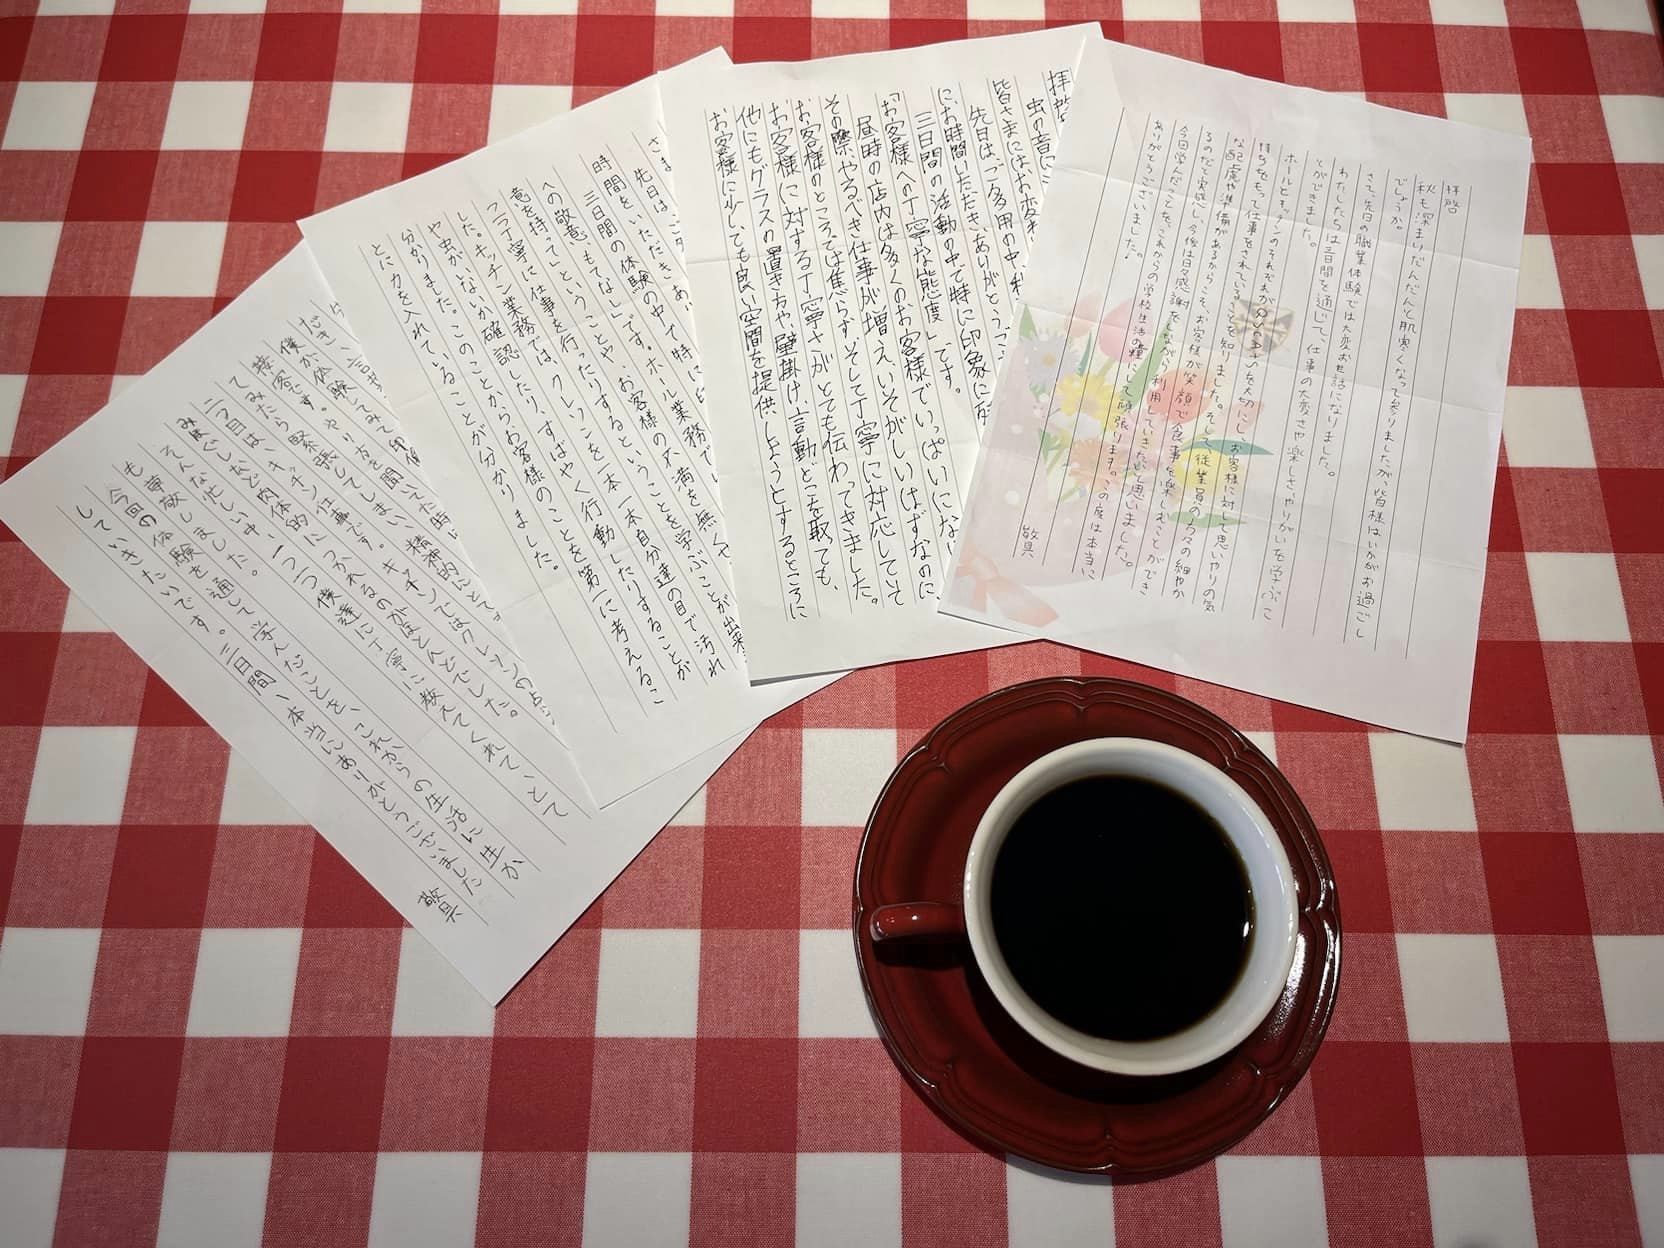 拝啓
秋も深まりだんだんと肌寒くなって参りましたが、皆様はいかがお過ごし
でしょうか。
さて、先日の職業体験では大変お世話になりました。
わたしたちは三日間を通じて、仕事の大変さや楽しさややりがいを学ぶこ
とができました。
ホールとキッチンのそれぞれが
を大切にし、お客様に対して思いやりの気
持ちをもって仕事をされていることを知りました。そして、従業員の方々の細やか
な配慮や準備があるからこそ、お客様が笑顔で食事を楽しむことができ
るのだと実感し、今後は日々感謝をしながら利用していきたいと思いました。
今回学んだことを、これからの学校生活の糧にして頑張ります。この度は本当に
ありがとうございました。
敬具
拝啓
虫の音に
皆さまにはお変わ
先日は、ご多用の中、
に、お時間いただき、ありがとうご
三日間の活動の中で特に印象に残
「お客様への丁寧な態度」です。
昼時の店内は多くのお客様でいっぱいにな
その際、やるべき仕事が増え、いそがしいはずなのに
お客様のところでは焦らず、そして丁寧に対応していて
お客様に対する丁寧さ」がとても伝わってきました。
他にもグラスの置き方や、壁掛け、言動どこを取っても、
お客様に少しでも良い空間を提供しようとするところに
さま
先日は、ご多
時間をいただき、あり
三日間の体験の中で特に
への敬意、もてなし」です。ホール業務で
意を持って」ということや、お客様の不満を無くせ
つ一つ丁寧に仕事を行ったりするということを学ぶことが出来
した。キッチン業務では、クレソンを一本一本自分達の目で汚れ
や虫がいないか確認したり、すばやく行動したりすることが
分かりました。このことから、お客様のことを第一に考えるこ
とに力を入れていることが分かりました。
だき、
僕が体験してみて印象
接客です。やり方を聞いた時は
てみたら緊張してしまい、精神的にとて
二つ目は、キッチン仕事です。キッチンではクレソンの点
みほぐしなど肉体的につかれるのがほとんどでした。
そんな忙しい中、一つ一つ僕達に丁寧に教えてくれて、とて
も尊敬しました。
今回の体験を通して学んだことを、これからの生活に生か
していきたいです。三日間、本当にありがとうございました
敬具